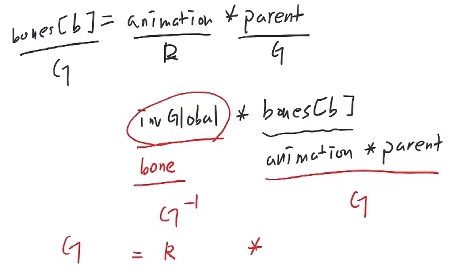 bones[b] = animation * parent
G R G
invGlobal * bones[b]
bone animation * parent
G⁻¹ G
G = R *